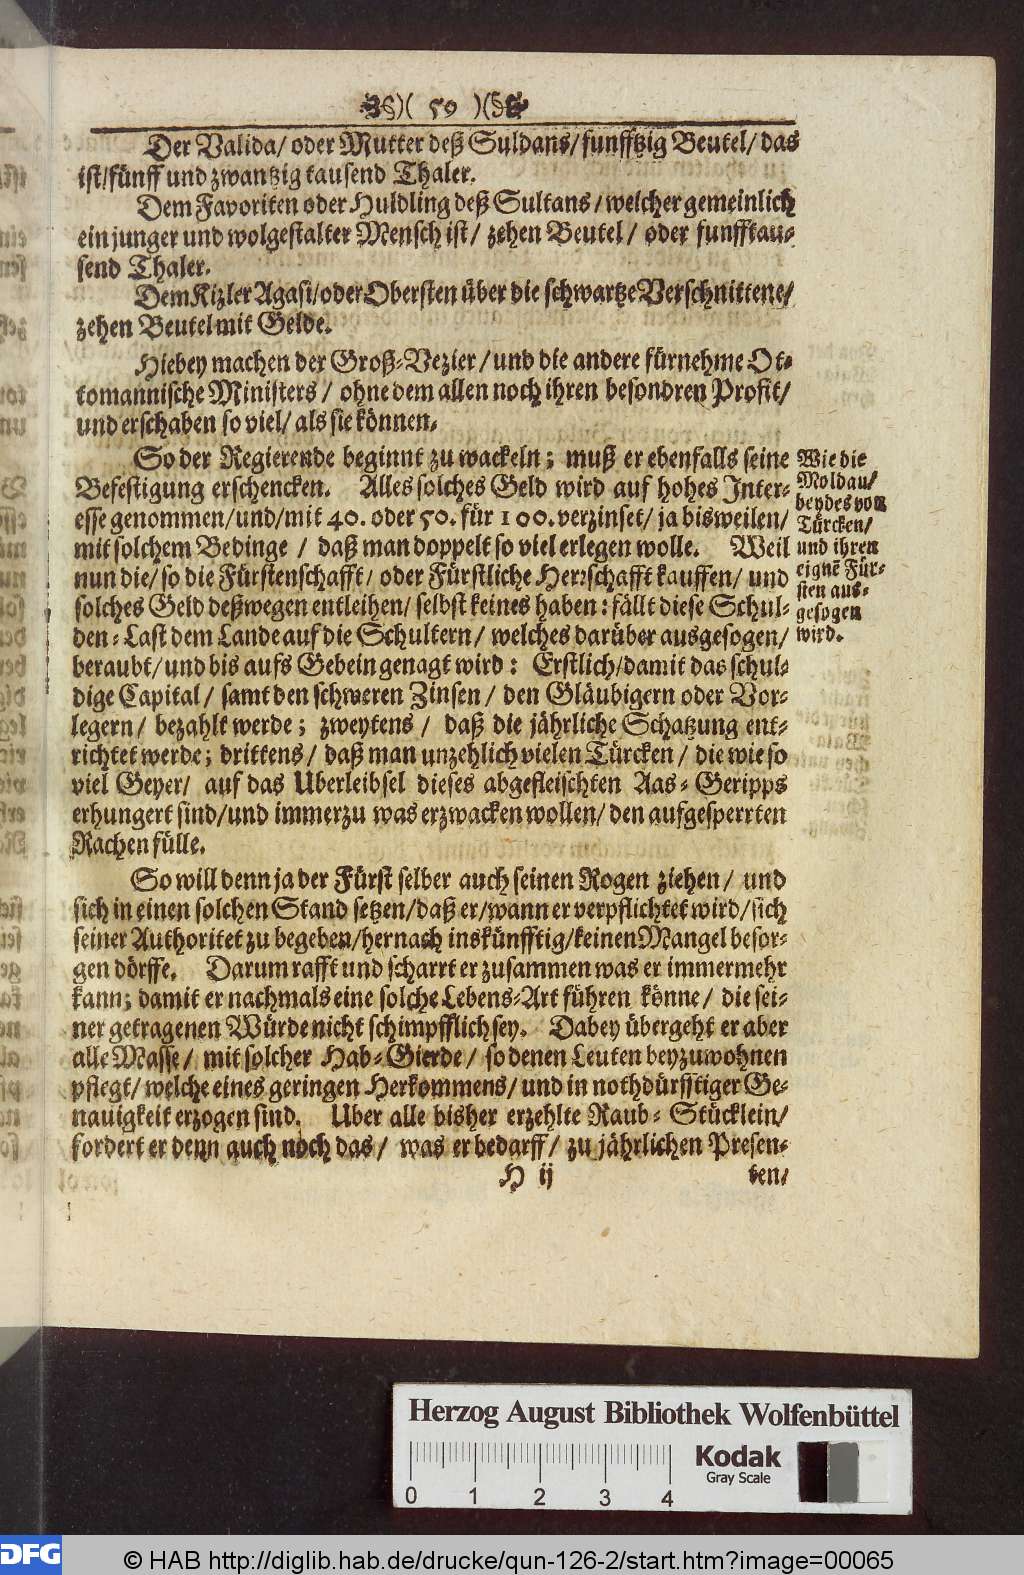 )( 59 )(
Der Valida/ oder Mutter deß Suldans/ funfftzig Beutel/ das
ist/ fünff und zwantzig tausend Thaler.
Dem Favoriten oder Huldling deß Sultans/ welcher gemeinlich
ein junger und wolgestalter Mensch ist/ zehen Beutel/ oder funfftau-
send Thaler.
Dem Kizler Agasi/ oder Obersten über die schwartze Verschnittene/
zehen Beutel mit Gelde.
Hiebey machen der Groß-Vezier/ und die andere fürnehme Ot-
tomannische Ministers/ ohne dem allen noch ihren besondren Profit/
und erschaben so viel/ als sie können.
So der Regierende beginnt zu wackeln; muß er ebenfalls seine
Befestigung erschencken. Alles solches Geld wird auf hohes Inter-
esse genommen/ und/ mit 40. oder 50. für 100. verzinset/ ja bisweilen/
mit solchem Bedinge/ daß man doppelt so viel erlegen wolle. Weil
nun die/ so die Fürstenschafft/ oder Fürstliche Herrschafft kauffen/ und
solches Geld deßwegen entleihen/ selbst keines haben: fällt diese Schul-
den-Last dem Lande auf die Schultern/ welches darüber ausgesogen/
beraubt/ und bis aufs Gebein genagt wird: Erstlich/ damit das schul-
dige Capital/ samt den schweren Zinsen/ den Gläubigern oder Vor-
legern/ bezahlt werde; zweytens/ daß die jährliche Schatzung ent-
richtet werde; drittens/ daß man unzehlich vielen Türcken/ die wie so
viel Geyer/ auf das Uberleibsel dieses abgefleischten Aas-Geripps
erhungert sind/ und immerzu was erzwacken wollen/ den aufgesperrten
Rachen fülle.
Wie die
Moldau/
beydes von
Türcken/
und ihren
eignẽ Für-
sten aus-
gesogen
wird.
So will denn ja der Fürst selber auch seinen Rogen ziehen/ und
sich in einen solchen Stand setzen/ daß er/ wann er verpflichtet wird/ sich
seiner Authoritet zu begeben/ hernach inskünfftig/ keinen Mangel besor-
gen dörffe. Darum rafft und scharrt er zusammen was er immermehr
kann; damit er nachmals eine solche Lebens-Art führen könne/ die sei-
ner getragenen Würde nicht schimpfflich sey. Dabey übergeht er aber
alle Masse/ mit solcher Hab-Gierde/ so denen Leuten beyzuwohnen
pflegt/ welche eines geringen Herkommens/ und in nothdürfftiger Ge-
nauigkeit erzogen sind. Uber alle bisher erzehlte Raub-Stücklein/
fordert er denn auch noch das/ was er bedarff/ zu jährlichen Presen-
H ij ten/
Herzog August Bibliothek Wolfenbüttel
Kodak
Gray Scale
0 1 2 3 4
DFG
© HAB http://diglib.hab.de/drucke/qun-126-2/start.htm?image=00065